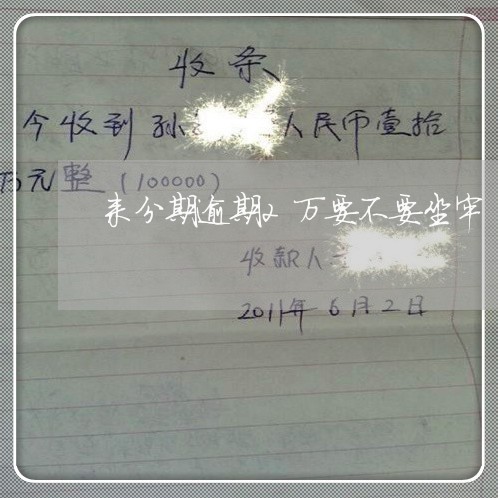 收条
今收到孙 人民币壹拾
万元整(100000)
来分期逾期2万要不要坐牢
收款人
2011年6月2日